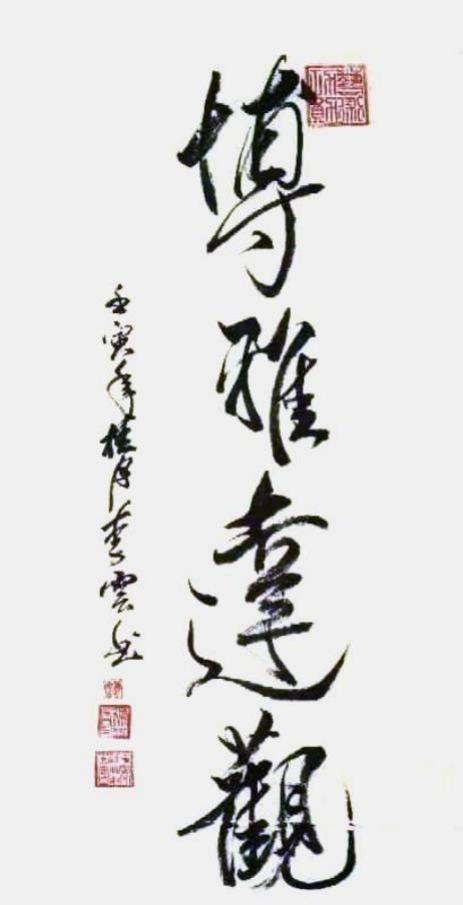 博雅達觀
壬寅年桂月李雲